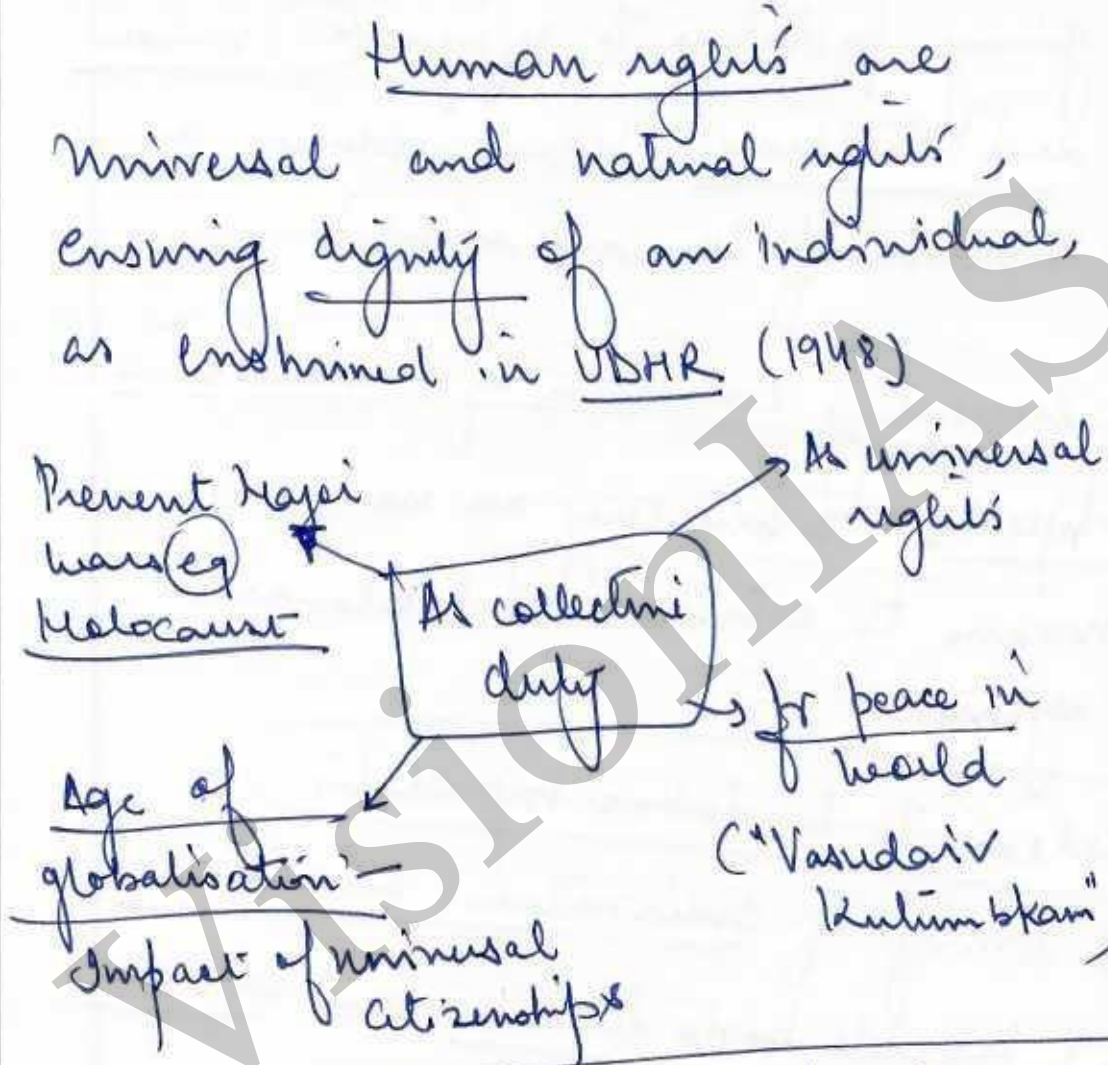 Human rights are
universal and natural rights,
ensuring dignity of an individual,
as enshrined in UDHR (1948)
As universal
rights
Prevent Major
wars (eg)
Holocaust
As collective
duty
for peace in
world
("Vasudaiv
Kutumbkam")
Age of
globalisation -
Impact of universal
citizenship
VisionIAS